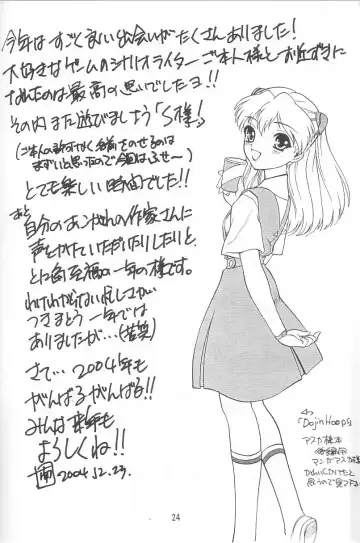 今年はすごくよい出会いがたくさんありました!
大好きなゲームのシナリオライターご本人様とお近ずきに
なれたのは最高の思いでしたヨ!!
その内また遊びましょう「S様」!
(ご本人の許可なく名前をのせるのは
まずいと思ったので今回はふせ〜)
とても楽しい時間でした!!
あと
自分のあこがれの作家さんに
声をかけていただいたりしたりと、
とにかく至福の一年の様です。
わけわかんない
つきまとう一年では
ありましたが…(苦笑)
さて…2004年も
がんばるがんばる!!
みんな来年も
よろしくね!!
2004.12.23.
「DojinHoop」
アスカ様本
マンガアスカ様
かわいくかけたと
思うので見て下さい
24